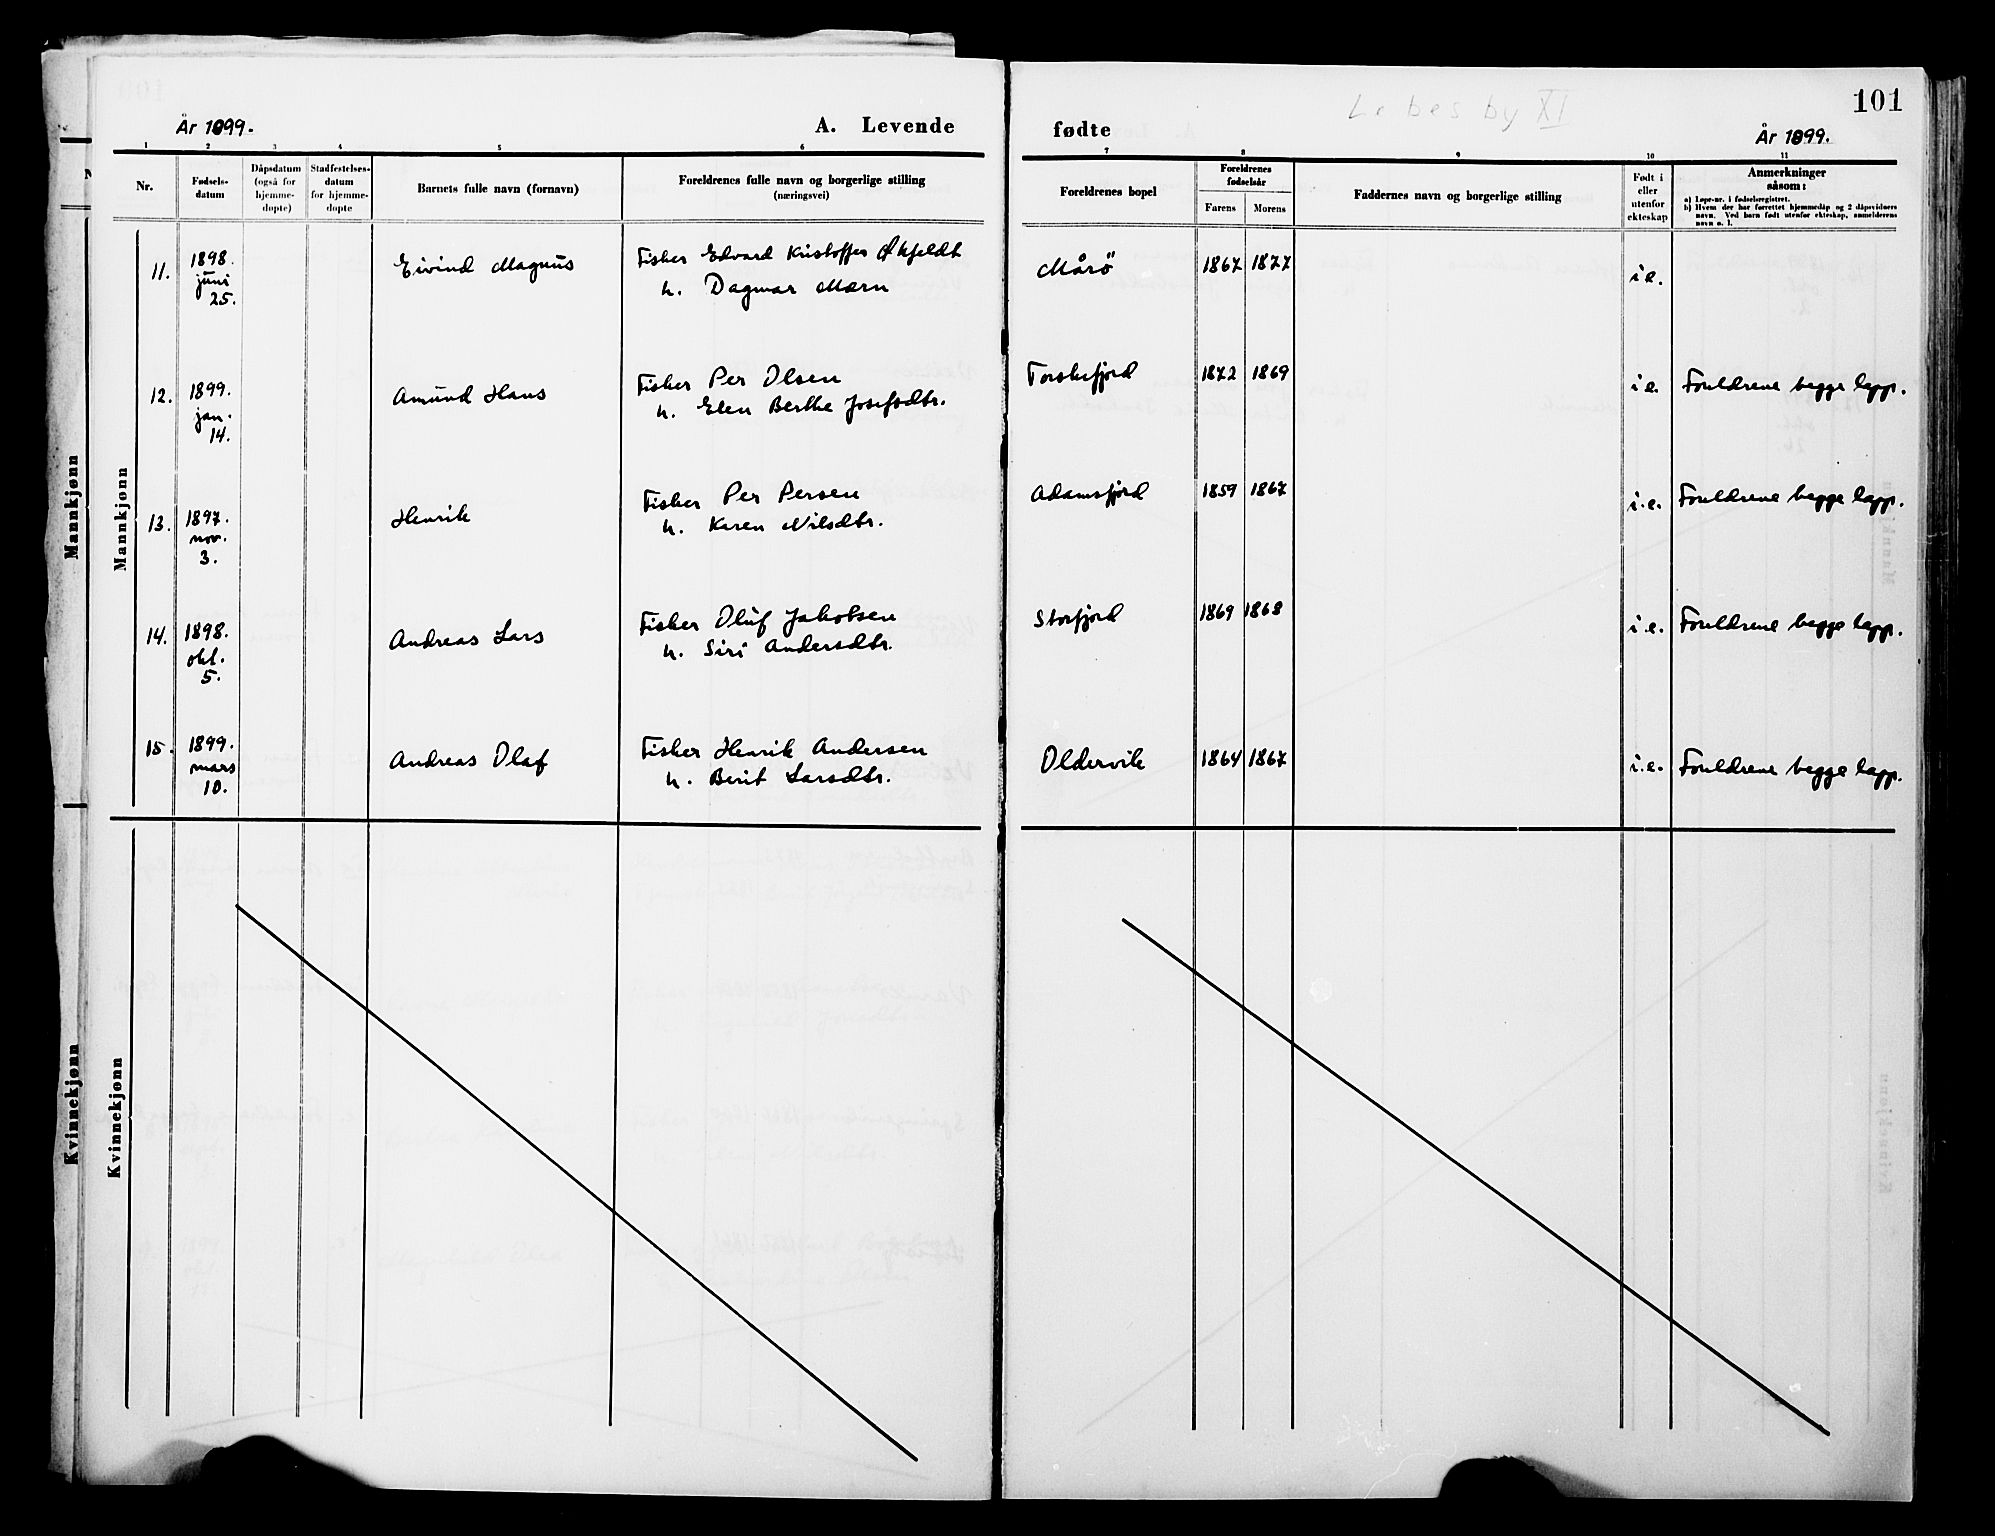 Lebesby XI
101
År 1899.
A. Levende
fødte
År 1899.
1 2 3 4 5 6 7 8 9 10 11
Nr.
Fødsels-
datum
Dåpsdatum
(også for
hjemme-
døpte)
Stadfestelses-
datum
for hjemme-
døpte
Barnets fulle navn (fornavn)
Foreldrenes fulle navn og borgerlige stilling
(næringsvei)
Foreldrenes bopel
Foreldrenes
fødselsår
Farens Morens
Faddernes navn og borgerlige stilling
Født i
eller
utenfor
ekteskap
Anmerkninger
såsom:
a) Løpe-nr. i fødselsregistret.
b) Hvem der har forrettet hjemmedåp og 2 dåpsvidners
navn. Ved barn født utenfor ekteskap, anmelderens
navn o. l.
Mannkjønn
Mannkjønn
11.
1898.
juni
25.
Eivind Magnus
Fisker Edvard Kristoffer
h. Dagmar Mærn
Mårö
1867 1877
i e.
12.
1899.
jan.
14.
Amund Hans
Fisker Per Olsen
h. Elen Berthe Josefsdtr.
Torskefjord
1872 1869
i e.
Foreldrene begge lapp.
13.
1897.
nov.
3.
Henrik
Fisker Per Persen
h. Karen Nilsdtr.
Adamsfjord
1859 1867
i. e.
Foreldrene begge lapp.
14.
1898.
okt.
5.
Andreas Lars
Fisker Oluf Jakobsen
h. Siri Andersdtr.
Storfjord
1869 1868
i e.
Foreldrene begge lapp.
15.
1899.
mars
10.
Andreas Olaf
Fisker Henrik Andersen
h. Berit Larsdtr.
Oldervik
1864 1867
i. e.
Foreldrene begge lapp.
Kvinnekjønn
Kvinnekjønn